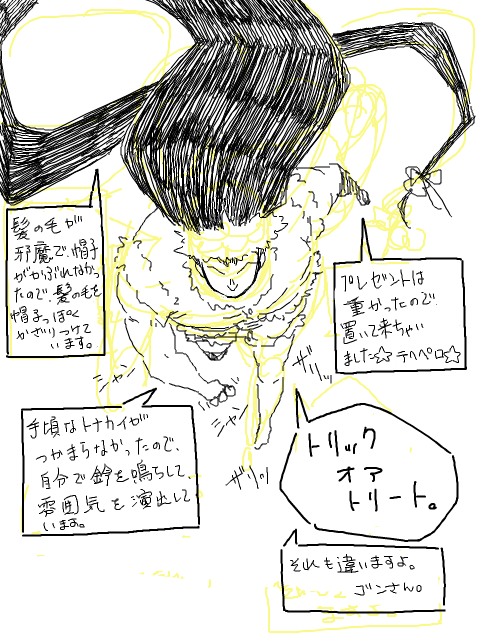 髪の毛が
邪魔で、帽子
がかぶれなかっ
たので、髪の毛を
帽子っぽく
かざりつけて
います。
プレゼントは
重かったので
置いて来ちゃい
ました☆テヘペロ☆
シャン
シャン
ザリッ
ザリッ
手頃なトナカイが
つかまらなかったので、
自分で鈴を鳴らして、
雰囲気を演出して
います。
トリック
オア
トリート。
それも違いますよ。
ゴンさん。